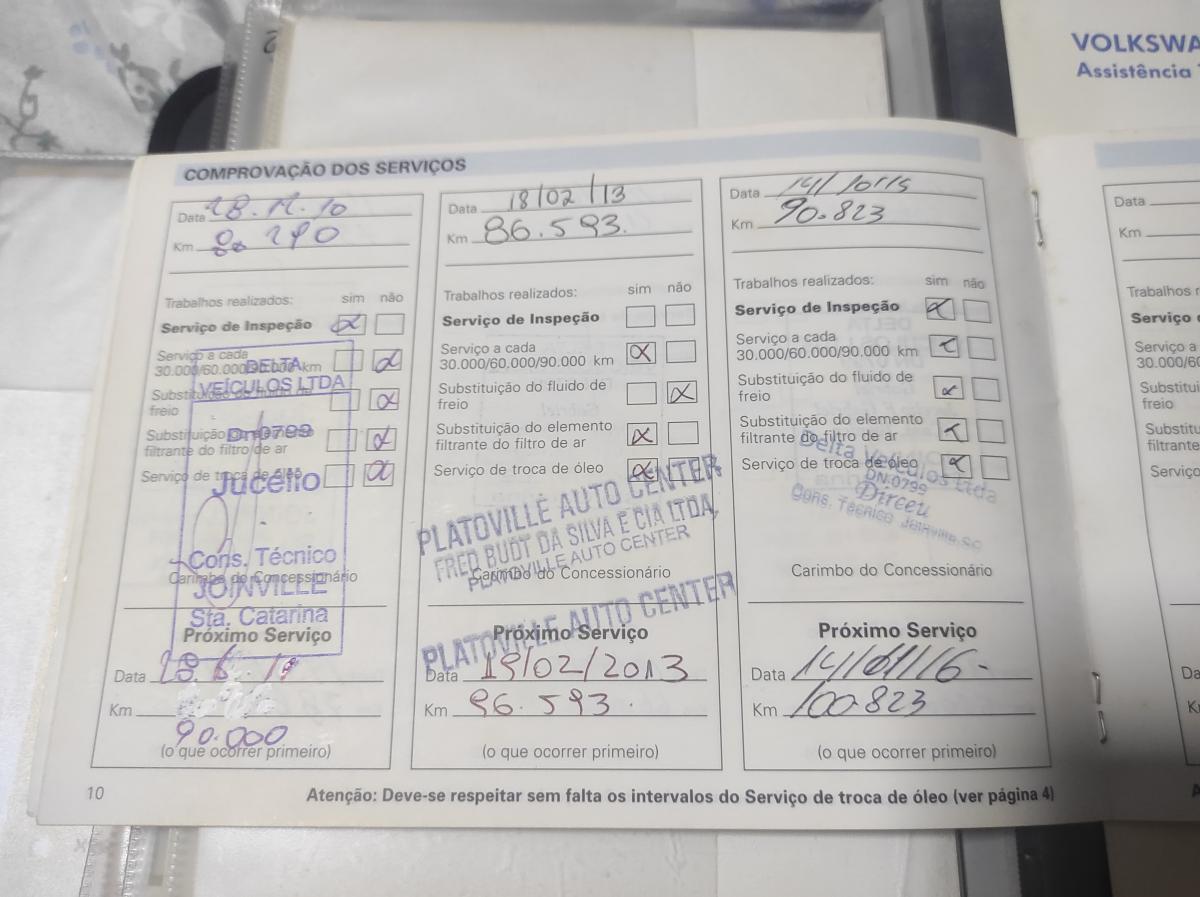 VOLKSWA
Assistência
COMPROVAÇÃO DOS SERVIÇOS
Data
Km
Trabalhos realizados: sim não
Serviço de Inspeção
Serviço a cada
30.000/60.000/90.000 km
Substituição do fluido de
freio
Substituição do elemento
filtrante do filtro de ar
Serviço de troca de óleo
DELTA
VEÍCULOS LTDA
Dn0799
Jucélio
Cons. Técnico
JOINVILLE
Sta. Catarina
Carimbo do Concessionário
Próximo Serviço
Data
Km
90.000
(o que ocorrer primeiro)
Data 18/02/13
Km 86.593.
Trabalhos realizados: sim não
Serviço de Inspeção
Serviço a cada
30.000/60.000/90.000 km
Substituição do fluido de
freio
Substituição do elemento
filtrante do filtro de ar
Serviço de troca de óleo
PLATOVILLE AUTO CENTER
FRED BUDT DA SILVA E CIA LTDA
PLATOVILLE AUTO CENTER
Carimbo do Concessionário
PLATOVILLE AUTO CENTER
Próximo Serviço
Data 18/02/2013
Km 96.593.
(o que ocorrer primeiro)
Data
Km 90.823
Trabalhos realizados: sim não
Serviço de Inspeção
Serviço a cada
30.000/60.000/90.000 km
Substituição do fluido de
freio
Substituição do elemento
filtrante do filtro de ar
Serviço de troca de óleo
Delta Veículos Ltda
DN:0799
Dirceu
Cons. Técnico Joinville.SC
Carimbo do Concessionário
Próximo Serviço
Data
Km 100.823
(o que ocorrer primeiro)
10
Atenção: Deve-se respeitar sem falta os intervalos do Serviço de troca de óleo (ver página 4)
Data
Km
Trabalhos
Serviço
Serviço a
30.000/60
freio
filtrante
Serviço